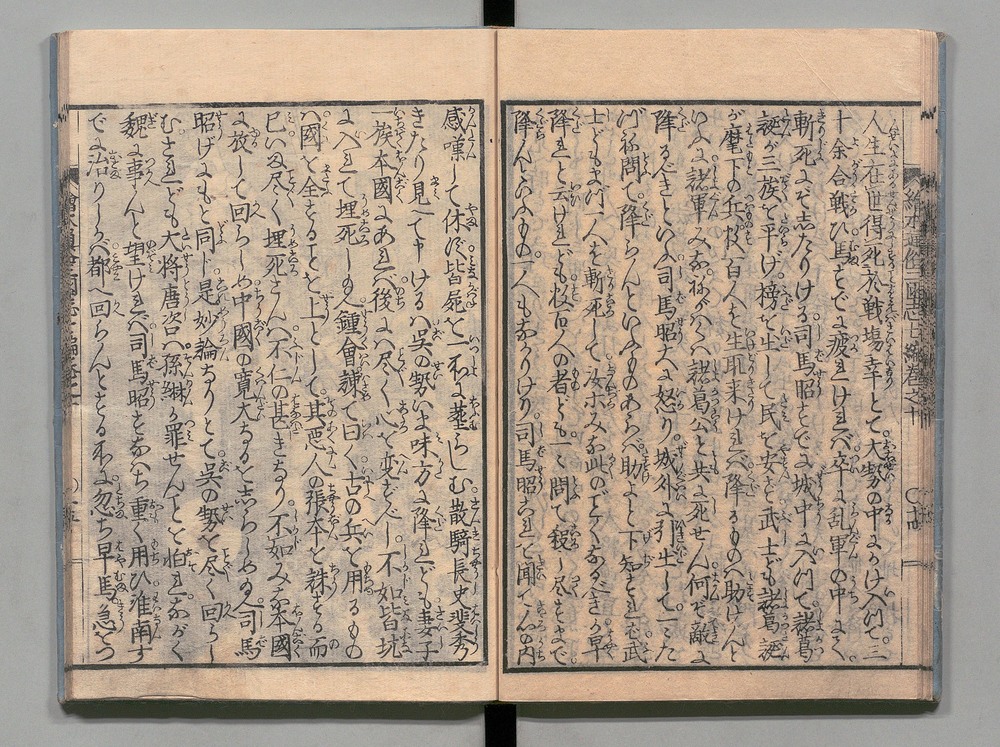 人生在世得死於戦場幸とて大勢の中にかけ入つて三
十余合戦ひ馬までに疲れければ卒に乱軍の中にて
斬死にぞしたりける司馬昭までに城中に入つて諸葛
誕が三族を平げ榜を出して民を安ど武士ども諸葛誕
が麾下の兵校百人を生取来ければ降るもの助けんと
いふに諸軍みな我が〳〵諸葛公と共に死せん何ぞ敵に
降るべきといふ司馬昭大に怒り城外に引出して一々た
づね問て降らんといふものあらば助よと下知すれば武
士どもまづ一人を斬死して汝等みな此のごとくなるべきが早
降れと云けれども校百人の者ども一々問て殺し尽すまで
降んといふもの一人もなかりけり司馬昭これを聞て心の内
感嘆して休ず皆屍を一所に塟らしむ散騎長史裴秀
きたり見へて申けるは呉の勢いま味方に降れども妻子
一族本國にあれば後には尽く心を変ずべし不如皆坑
に入れて埋死しめん鍾會諫て曰く古の兵を用るもの
は國を全するを上として其悪人の張本を誅するの而
已いま尽く埋死さんは不仁の甚きなり不如みな本國
に放して回らしめ中國の寛大なるを志らしめん司馬
昭げにもと同じ是妙論なりとて呉の勢を尽く回らし
むされども大将唐咨は孫綝が罪せんことを怕れながく
魏に事んと望ければ司馬昭すなはち重く用ひ淮南す
でに治りしかば都へ回らんとする所に忽ち早馬急をつ